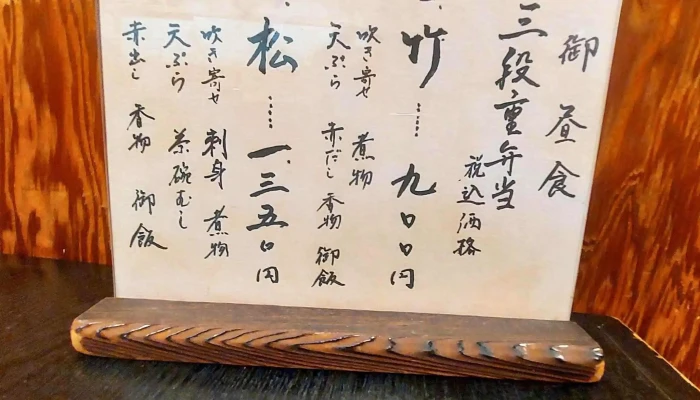 御昼食
三段重弁当
税込価格
竹……九〇〇円
吹き寄せ 煮物
天ぷら 赤だし 香物 御飯
松……一、三五〇円
吹き寄せ 刺身 煮物
天ぷら 茶碗むし
赤出し 香物 御飯